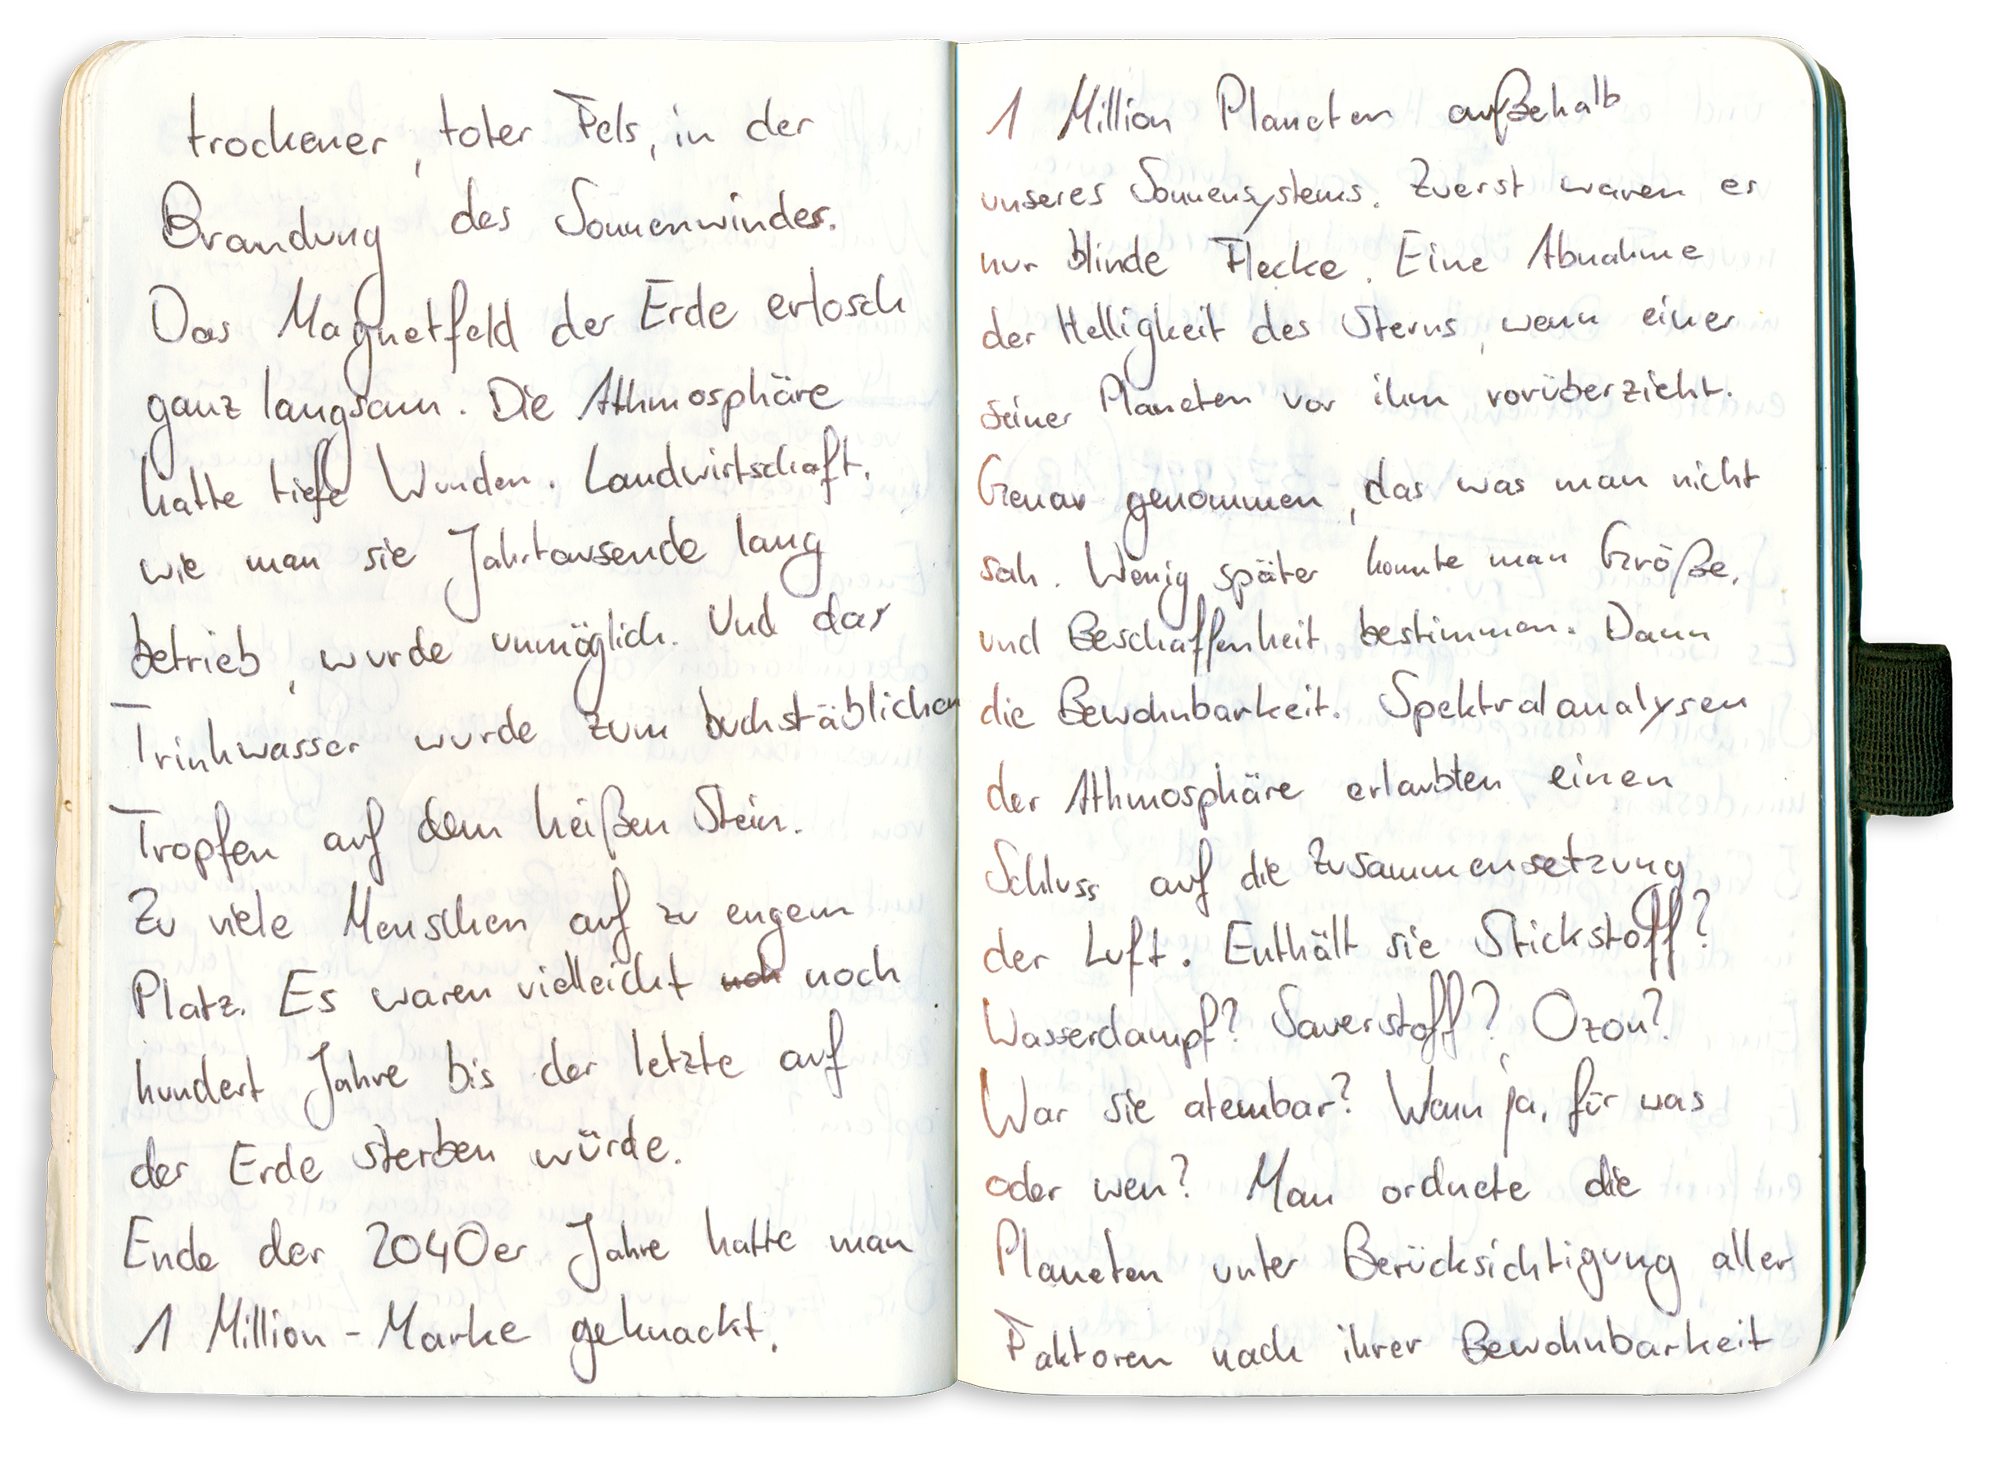 trockener, toter Fels, in der
Brandung des Sonnenwindes.
Das Magnetfeld der Erde erlosch
ganz langsam. Die Athmosphäre
hatte tiefe Wunden. Landwirtschaft,
wie man sie Jahrtausende lang
betrieb, wurde unmöglich. Und das
Trinkwasser wurde zum buchstäblichen
Tropfen auf dem heißen Stein.
Zu viele Menschen auf zu engem
Platz. Es waren vielleicht noch
hundert Jahre bis der letzte auf
der Erde sterben würde.
Ende der 2040er Jahre hatte man
1 Million-Marke geknackt.
1 Million Planeten außehalb
unseres Sonnensystems. Zuerst waren es
nur blinde Flecke. Eine Abnahme
der Helligkeit des Sterns, wenn einer
seiner Planeten vor ihm vorüberzieht.
Genau genommen, das was man nicht
sah. Wenig später konnte man Größe,
und Beschaffenheit bestimmen. Dann
die Bewohnbarkeit. Spektralanalysen
der Athmosphäre erlaubten einen
Schluss auf die Zusammensetzung
der Luft. Enthält sie Stickstoff?
Wasserdampf? Sauerstoff? Ozon?
War sie atembar? Wenn ja, für was
oder wen? Man ordnete die
Planeten unter Berücksichtigung aller
Faktoren nach ihrer Bewohnbarkeit